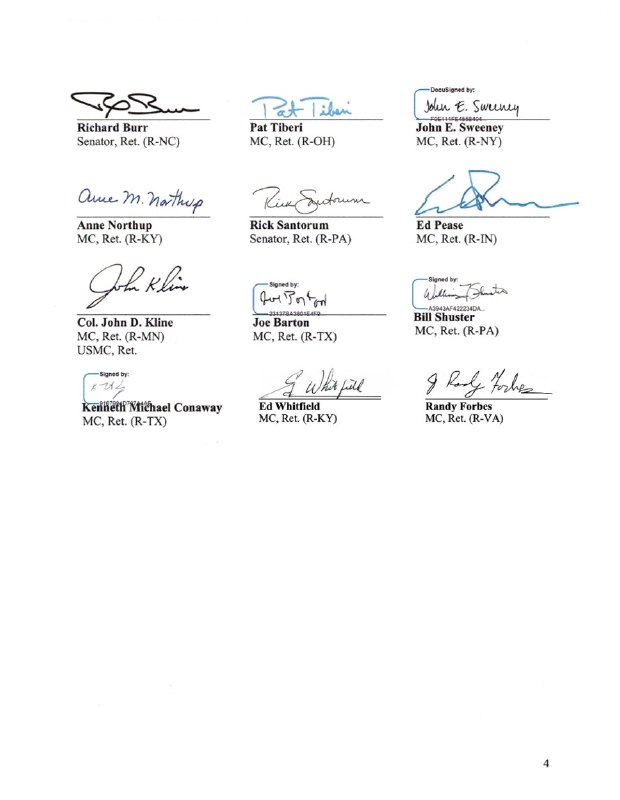 DocuSigned by:
Pat Tiberi
John E. Sweeney
Richard Burr
Senator, Ret. (R-NC)
Pat Tiberi
MC, Ret. (R-OH)
John E. Sweeney
MC, Ret. (R-NY)
Anne M. Northup
Rick Santorum
Anne Northup
MC, Ret. (R-KY)
Rick Santorum
Senator, Ret. (R-PA)
Ed Pease
MC, Ret. (R-IN)
John Kline
Signed by:
Signed by:
A3943AF422234DA...
Col. John D. Kline
MC, Ret. (R-MN)
USMC, Ret.
Joe Barton
MC, Ret. (R-TX)
Bill Shuster
MC, Ret. (R-PA)
Signed by:
Ed Whitfield
J Randy Forbes
Kenneth Michael Conaway
MC, Ret. (R-TX)
Ed Whitfield
MC, Ret. (R-KY)
Randy Forbes
MC, Ret. (R-VA)
4